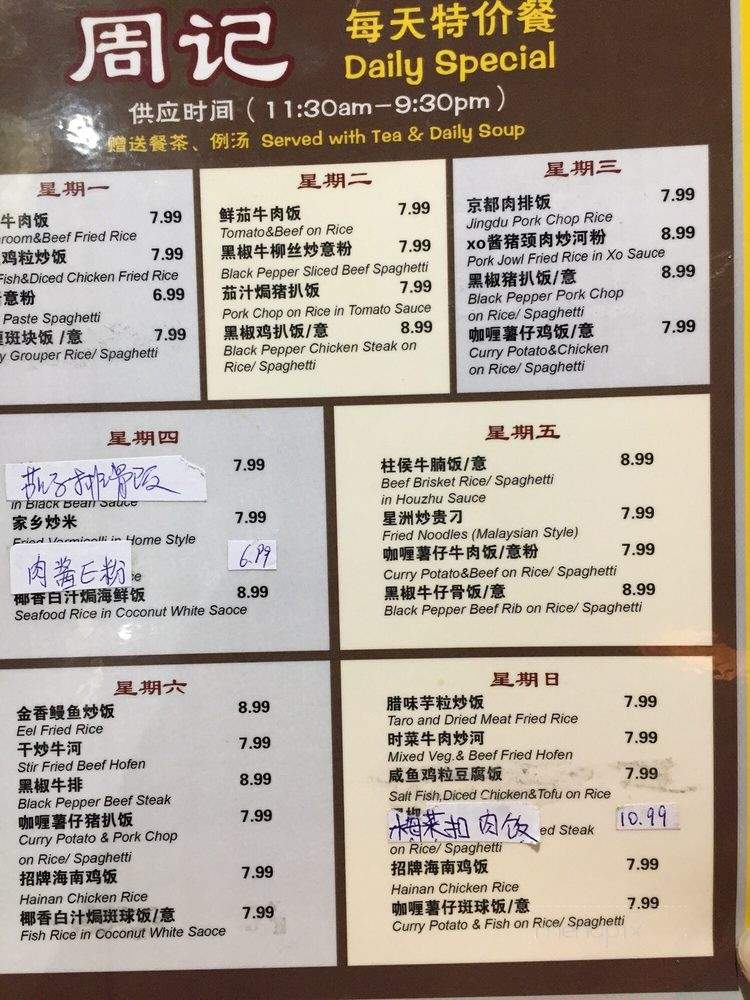 周记
每天特价餐
Daily Special
供应时间 ( 11:30am-9:30pm )
赠送餐茶、例汤 Served with Tea & Daily Soup
星期一
牛肉饭 7.99
room&Beef Fried Rice
鸡粒炒饭 7.99
Fish&Diced Chicken Fried Rice
意粉 6.99
Paste Spaghetti
斑块饭 /意 7.99
y Grouper Rice/ Spaghetti
星期二
鲜茄牛肉饭 7.99
Tomato&Beef on Rice
黑椒牛柳丝炒意粉 7.99
Black Pepper Sliced Beef Spaghetti
茄汁焗猪扒饭 7.99
Pork Chop on Rice in Tomato Sauce
黑椒鸡扒饭/意 8.99
Black Pepper Chicken Steak on
Rice/ Spaghetti
星期三
京都肉排饭 7.99
Jingdu Pork Chop Rice
xo酱猪颈肉炒河粉 8.99
Pork Jowl Fried Rice in Xo Sauce
黑椒猪扒饭/意 8.99
Black Pepper Pork Chop
on Rice/ Spaghetti
咖喱薯仔鸡饭/意 7.99
Curry Potato&Chicken
on Rice/ Spaghetti
星期四
茄子排骨饭 7.99
in Black Bean Sauce
家乡炒米 7.99
Fried Vermicelli in Home Style
肉酱E粉 6.99
ce
椰香白汁焗海鲜饭 8.99
Seafood Rice in Coconut White Saoce
星期五
柱侯牛腩饭/意 8.99
Beef Brisket Rice/ Spaghetti
in Houzhu Sauce
星洲炒贵刁 7.99
Fried Noodles (Malaysian Style)
咖喱薯仔牛肉饭/意粉 7.99
Curry Potato&Beef on Rice/ Spaghetti
黑椒牛仔骨饭/意 8.99
Black Pepper Beef Rib on Rice/ Spaghetti
星期六
金香鳗鱼炒饭 8.99
Eel Fried Rice
干炒牛河 7.99
Stir Fried Beef Hofen
黑椒牛排 8.99
Black Pepper Beef Steak
咖喱薯仔猪扒饭 7.99
Curry Potato & Pork Chop
on Rice/ Spaghetti
招牌海南鸡饭 7.99
Hainan Chicken Rice
椰香白汁焗斑球饭/意 7.99
Fish Rice in Coconut White Saoce
星期日
腊味芋粒炒饭 7.99
Taro and Dried Meat Fried Rice
时菜牛肉炒河 7.99
Mixed Veg.& Beef Fried Hofen
咸鱼鸡粒豆腐饭 7.99
Salt Fish,Diced Chicken&Tofu on Rice
梅菜扣肉饭 10.99
ed Steak
on Rice/ Spaghetti
招牌海南鸡饭 7.99
Hainan Chicken Rice
咖喱薯仔斑球饭/意 7.99
Curry Potato & Fish on Rice/ Spaghetti